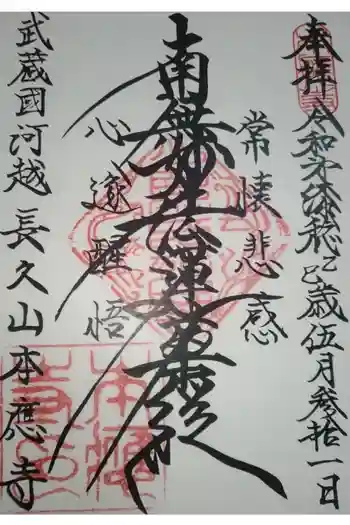 奉拝 令和第漆稔乙巳歳伍月參拾一日
常懐悲感
南無妙法蓮華経
心遂醒悟
武蔵國河越 長久山本應寺